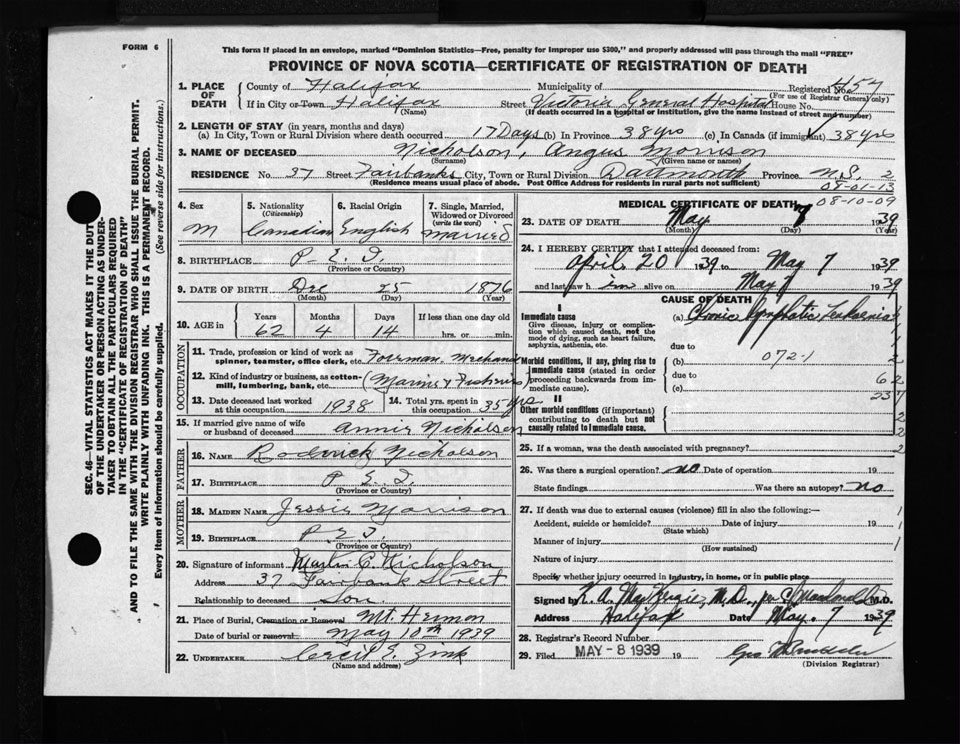 FORM 6
This form if placed in an envelope, marked "Dominion Statistics—Free, penalty for improper use $300," and properly addressed will pass through the mail "FREE"
PROVINCE OF NOVA SCOTIA—CERTIFICATE OF REGISTRATION OF DEATH
SEC. 46—VITAL STATISTICS ACT MAKES IT THE DUTY
OF THE UNDERTAKER OR PERSON ACTING AS UNDER-
TAKER TO OBTAIN ALL THE PARTICULARS REQUIRED
IN THE "CERTIFICATE OF REGISTRATION OF DEATH"
AND TO FILE THE SAME WITH THE DIVISION REGISTRAR WHO SHALL ISSUE THE BURIAL PERMIT.
WRITE PLAINLY WITH UNFADING INK. THIS IS A PERMANENT RECORD.
Every item of information should be carefully supplied. (See reverse side for instructions.)
1. PLACE OF DEATH
County of Halifax Municipality of Registered No. 457
(For use of Registrar General only)
If in City or Town Halifax Street Victoria General Hospital House No.
(Name) (If death occurred in a hospital or institution, give the name instead of street and number)
2. LENGTH OF STAY (in years, months and days)
(a) In City, Town or Rural Division where death occurred 17 Days (b) In Province 38 yrs (c) In Canada (if immigrant) 38 yrs
3. NAME OF DECEASED Nicholson, Angus Morrison
(Surname) (Given name or names)
RESIDENCE No. 37 Street Fairbanks City, Town or Rural Division Dartmouth Province N.S. 2
(Residence means usual place of abode. Post Office Address for residents in rural parts not sufficient)
08-01-13
08-10-09
4. Sex M
5. Nationality (Citizenship) Canadian
6. Racial Origin English
7. Single, Married, Widowed or Divorced (write the word) Married
8. BIRTHPLACE P.E.I.
(Province or Country)
9. DATE OF BIRTH Dec 25 1876
(Month) (Day) (Year)
10. AGE in Years Months Days If less than one day
62 4 14 hrs. or min.
OCCUPATION
11. Trade, profession or kind of work as spinner, teamster, office clerk, etc. Foreman. Mechanic
12. Kind of industry or business, as cotton-mill, lumbering, bank, etc. (Marine & Fisheries)
13. Date deceased last worked at this occupation 1938
14. Total yrs. spent in this occupation 35 yrs
15. If married give name of wife or husband of deceased Annie Nicholson
FATHER
16. NAME Roderick Nicholson
17. BIRTHPLACE P.E.I.
(Province or Country)
MOTHER
18. MAIDEN NAME Jessie Morrison
19. BIRTHPLACE P.E.I.
(Province or Country)
20. Signature of informant Martin C. Nicholson
Address 37 Fairbank Street
Relationship to deceased Son.
21. Place of Burial, Cremation or Removal Mt. Hermon
Date of burial or removal May 10th 1939
22. UNDERTAKER Cecil E. Zink
(Name and address)
MEDICAL CERTIFICATE OF DEATH
23. DATE OF DEATH May 7 1939
(Month) (Day) (Year)
24. I HEREBY CERTIFY that I attended deceased from:
April 20 1939 to May 7 1939
and last saw h im alive on May 7 1939
CAUSE OF DEATH
I
Immediate cause
Give disease, injury or complication which caused death, not the mode of dying, such as heart failure, asphyxia, asthenia, etc.
(a) Chronic Lymphatic Leukaemia
due to
Morbid conditions, if any, giving rise to immediate cause (stated in order proceeding backwards from immediate cause).
(b) 072-1
due to
(c)
II
Other morbid conditions (if important) contributing to death but not causally related to immediate cause.
25. If a woman, was the death associated with pregnancy?
26. Was there a surgical operation? no Date of operation 19
State findings Was there an autopsy? no
27. If death was due to external causes (violence) fill in also the following:—
Accident, suicide or homicide? Date of injury 19
(State which)
Manner of injury
(How sustained)
Nature of injury
Specify whether injury occurred in industry, in home, or in public place
Signed by K. A. MacKenzie, M.D., per M.D.
Address Halifax Date May. 7 1939
28. Registrar's Record Number
29. Filed MAY - 8 1939 19 Geo
(Division Registrar)